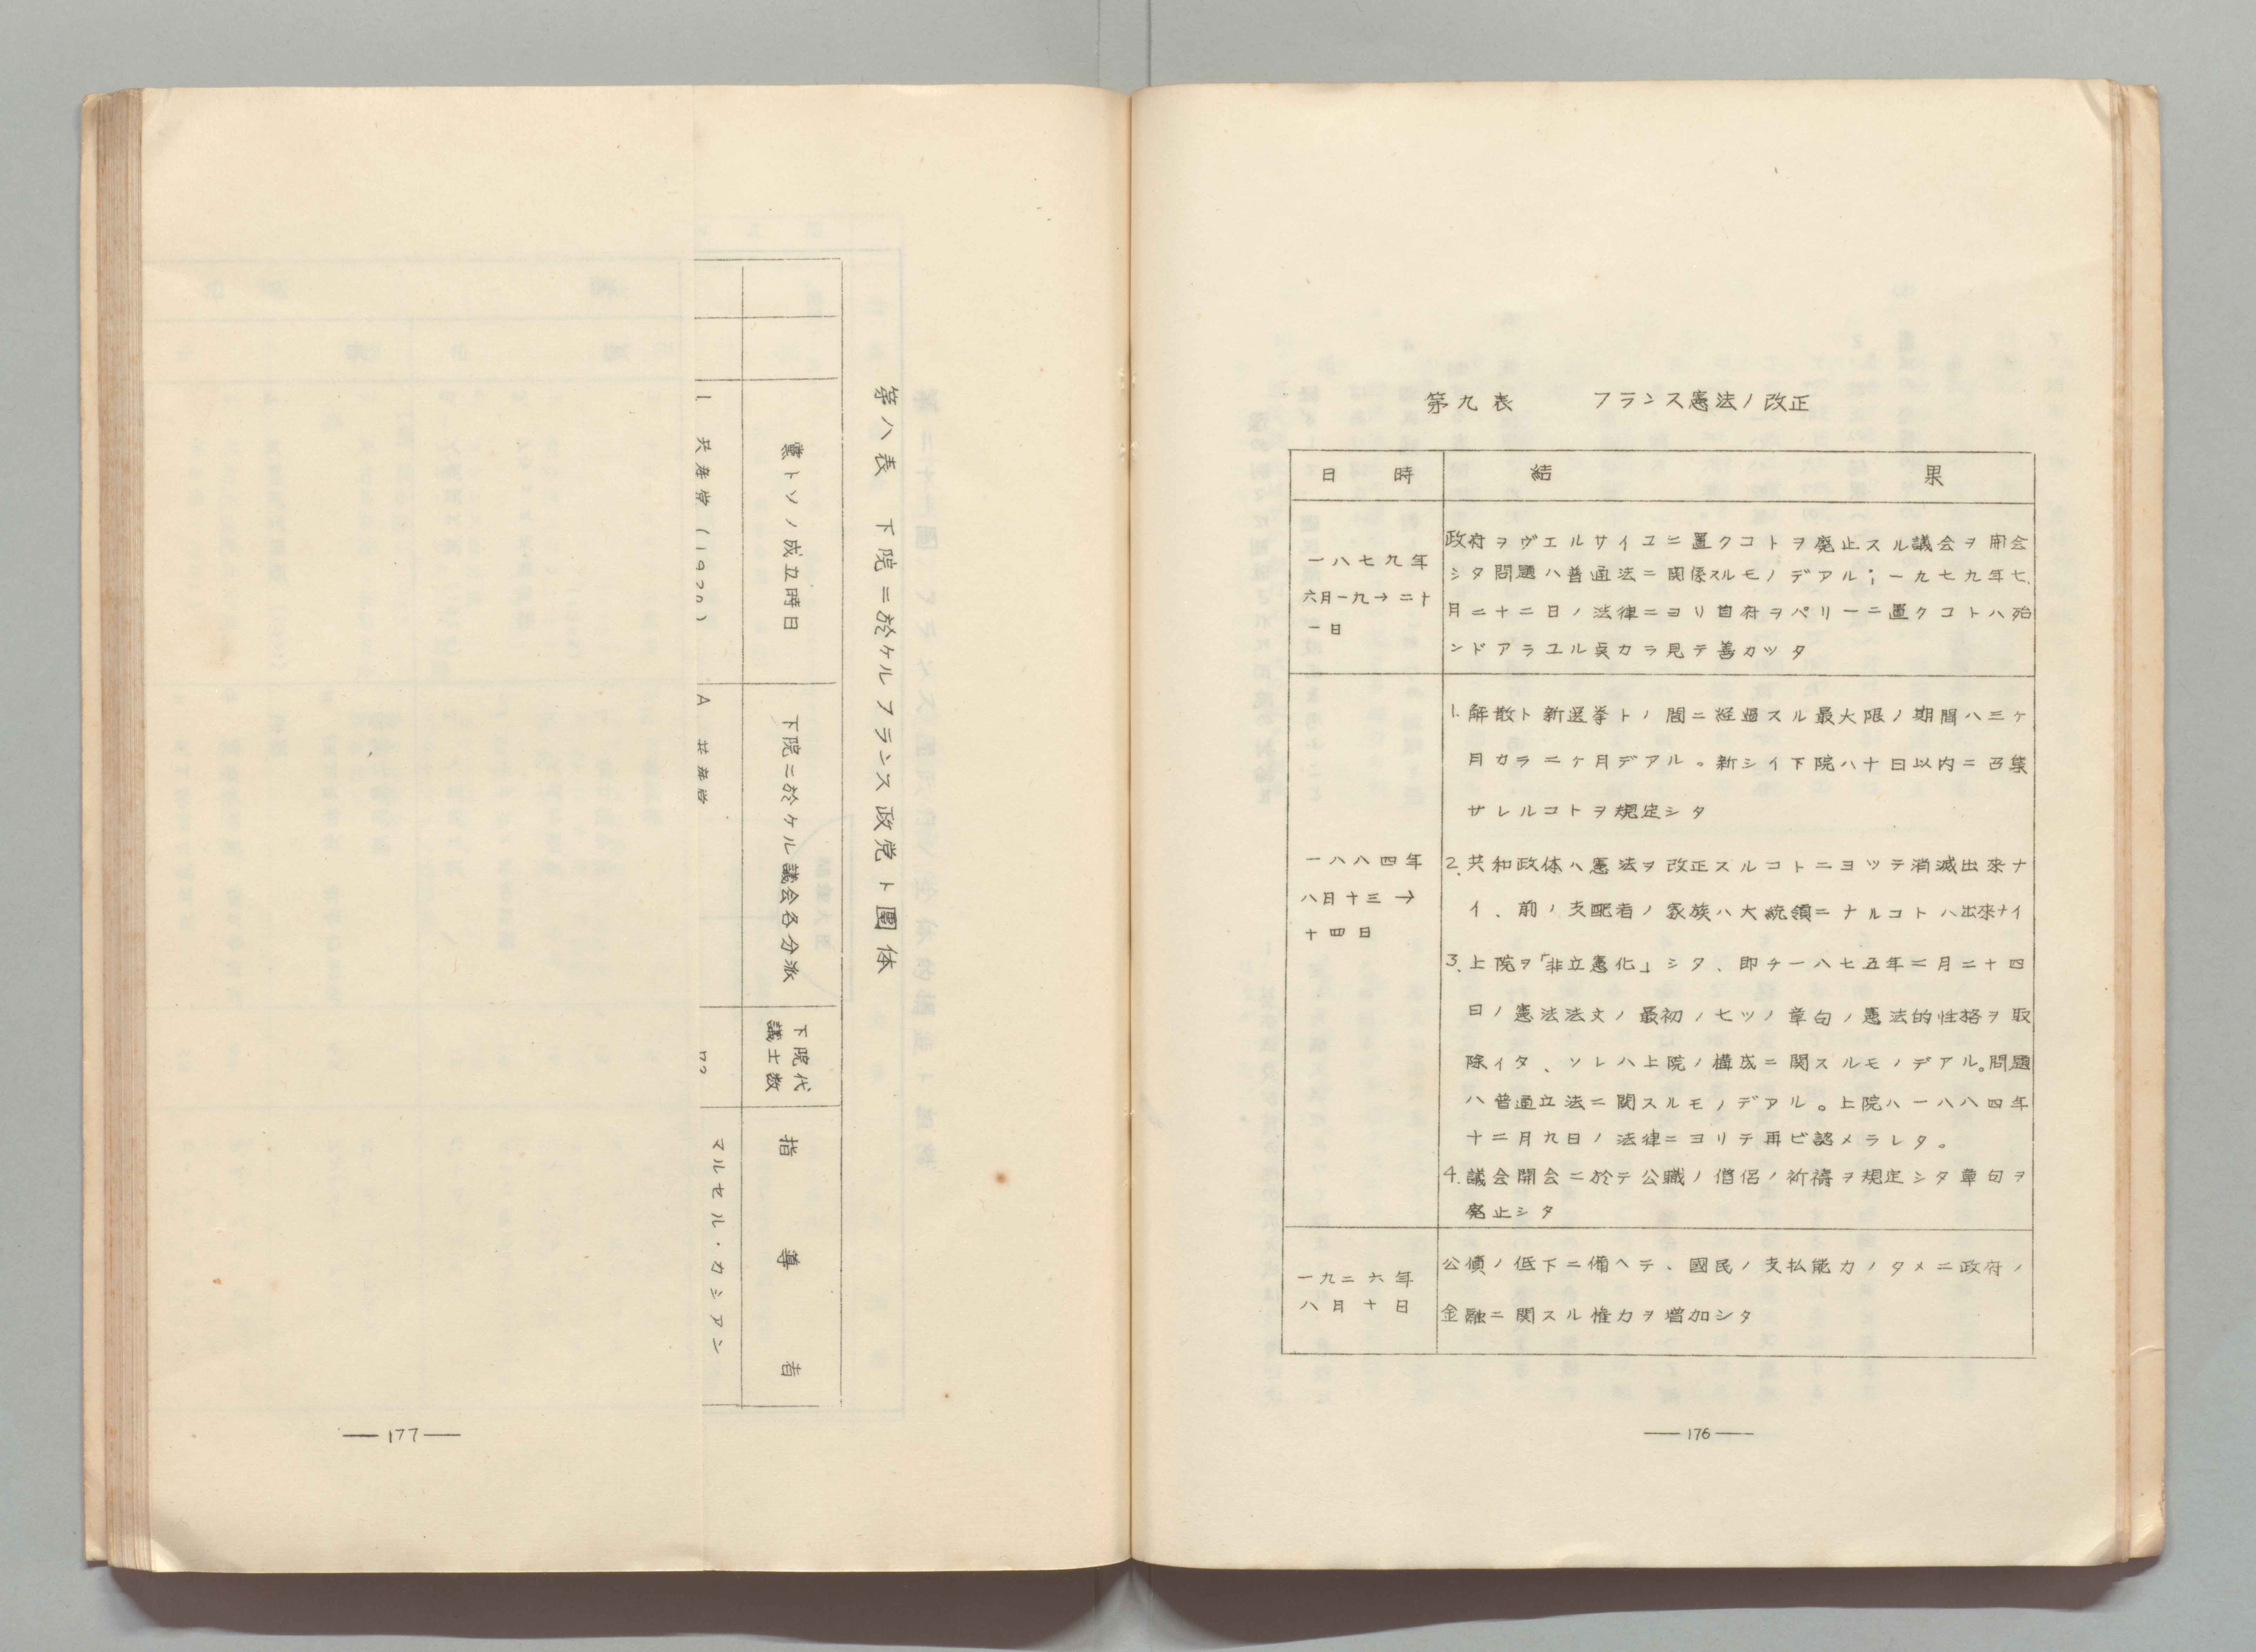 第九表　フランス憲法ノ改正
日時　結果
一八七九年
六月一九→二十
一日
政府ヲヴエルサイユニ置クコトヲ廃止スル議会ヲ開会
シタ問題ハ普通法ニ関係スルモノデアル；一九七九年七、
月二十二日ノ法律ニヨリ首府ヲペリーニ置クコトハ殆
ンドアラユル点カラ見テ善カツタ
一八八四年
八日十三→
十四日
1. 解散ト新選挙トノ間ニ経過スル最大限ノ期間ハ三ヶ
月カラ二ヶ月デアル。新シイ下院ハ十日以内ニ召集
サレルコトヲ規定シタ
2. 共和政体ハ憲法ヲ改正スルコトニヨツテ消滅出来ナ
イ、前ノ支配者ノ家族ハ大統領ニナルコトハ出来ナイ
3. 上院ヲ「非立憲化」シタ、即チ一八七五年二月二十四
日ノ憲法法文ノ最初ノ七ツノ章句ノ憲法的性格ヲ取
除イタ、ソレハ上院ノ構成ニ関スルモノデアル。問題
ハ普通立法ニ関スルモノデアル。上院ハ一八八四年
十二月九日ノ法律ニヨリテ再ビ認メラレタ。
4. 議会開会ニ於テ公職ノ僧侶ノ祈禱ヲ規定シタ章句ヲ
廃止シタ
一九二六年
八月十日
公債ノ低下ニ備ヘテ、國民ノ支払能力ノタメニ政府ノ
金融ニ関スル権力ヲ増加シタ
—176—
第八表　下院ニ於ケルフランス政党ト團体
黨トソノ成立時日
下院ニ於ケル議会各分派
下院代
議士数
指導者
1 共産党（1920）
A 共産党
マルセル・カシアン
—177—